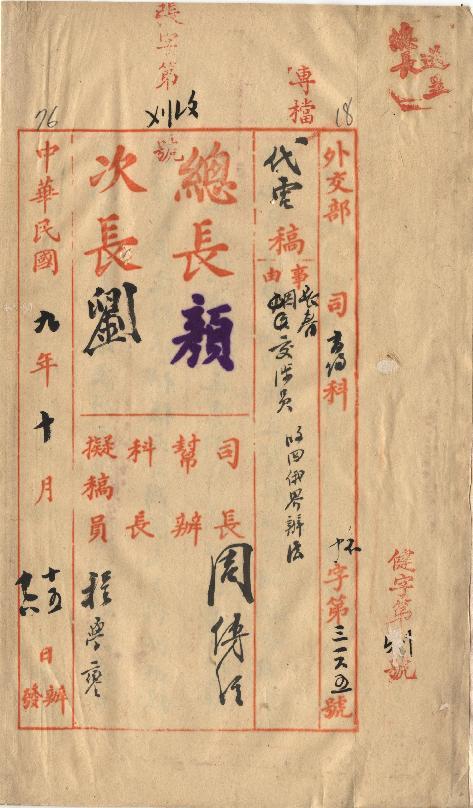 總長
送呈
健字第
號
專檔
18
外交部
司
科
字第三一六五號
代電稿
事由
長春
交涉員
收回俄界辦法
張字第
號
總長顏
司長
周傳經
幫辦
次長劉
科長
擬稿員
程學鑾
76
中華民國九年十月十五日辦
發